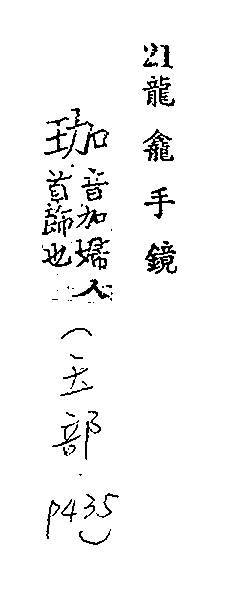 21龍龕手鏡
珈音加婦人首飾也(玉部.p435)